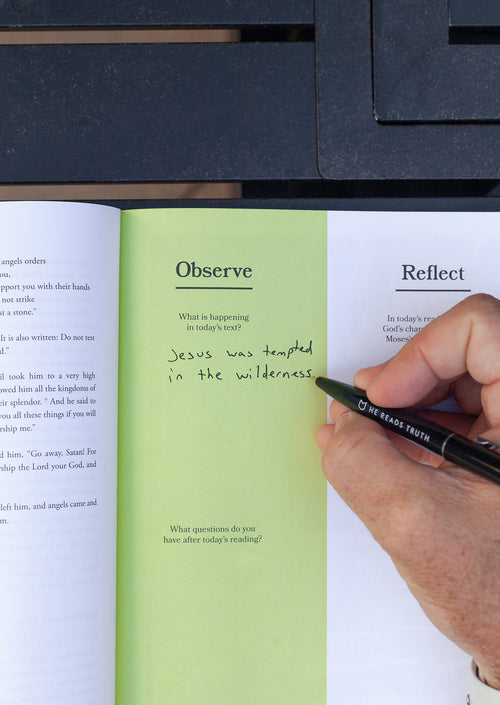 angels orders
ou,
pport you with their hands
not strike
st a stone."
It is also written: Do not test
d."
il took him to a very high
owed him all the kingdoms of
eir splendor. ⁹ And he said to
you all these things if you will
rship me."
d him, "Go away, Satan! For
rship the Lord your God, and
left him, and angels came and
m.
Observe
What is happening
in today's text?
Jesus was tempted
in the wilderness.
What questions do you
have after today's reading?
Reflect
In today's read
God's char
Moses'
HE READS TRUTH